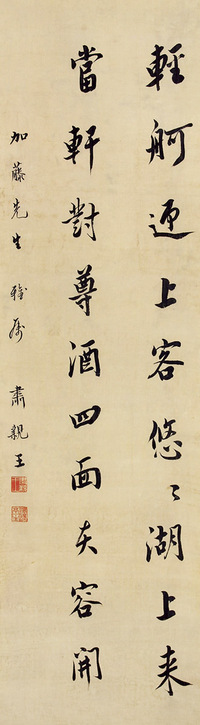 輕舸迎上客悠〻湖上来
當軒對尊酒四面芙容開
加藤先生雅屬
肅親王